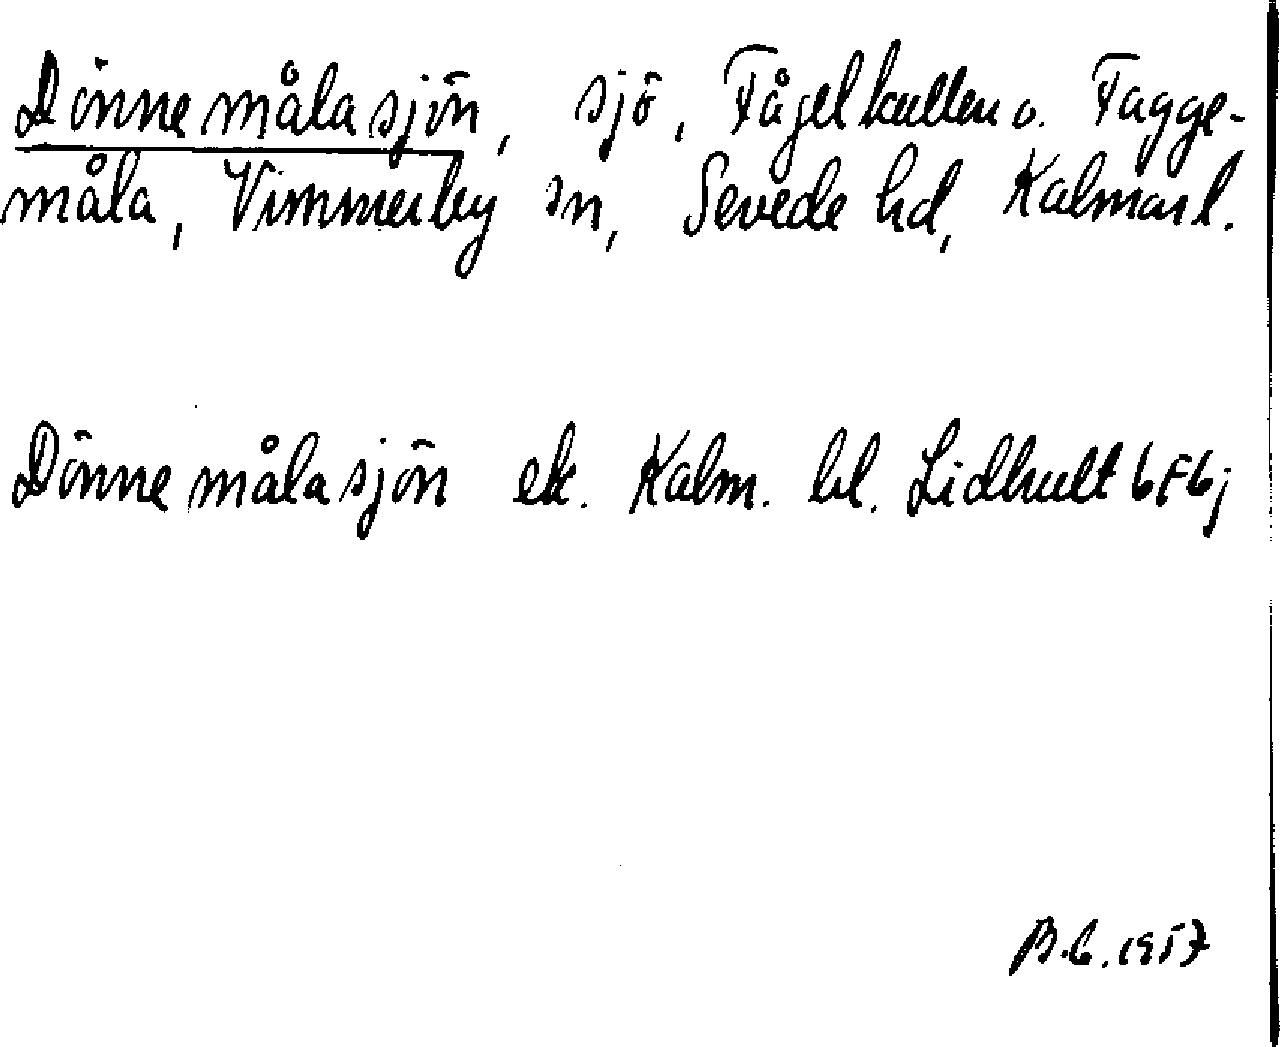 Dönnemålasjön, sjö, Fågelkullen o. Fagge-
måla, Vimmerby sn, Sevede hd, Kalmar l.
Dönnemålasjön ek. Kalm. bl. Lidhult 6F6j
B.C. 1957